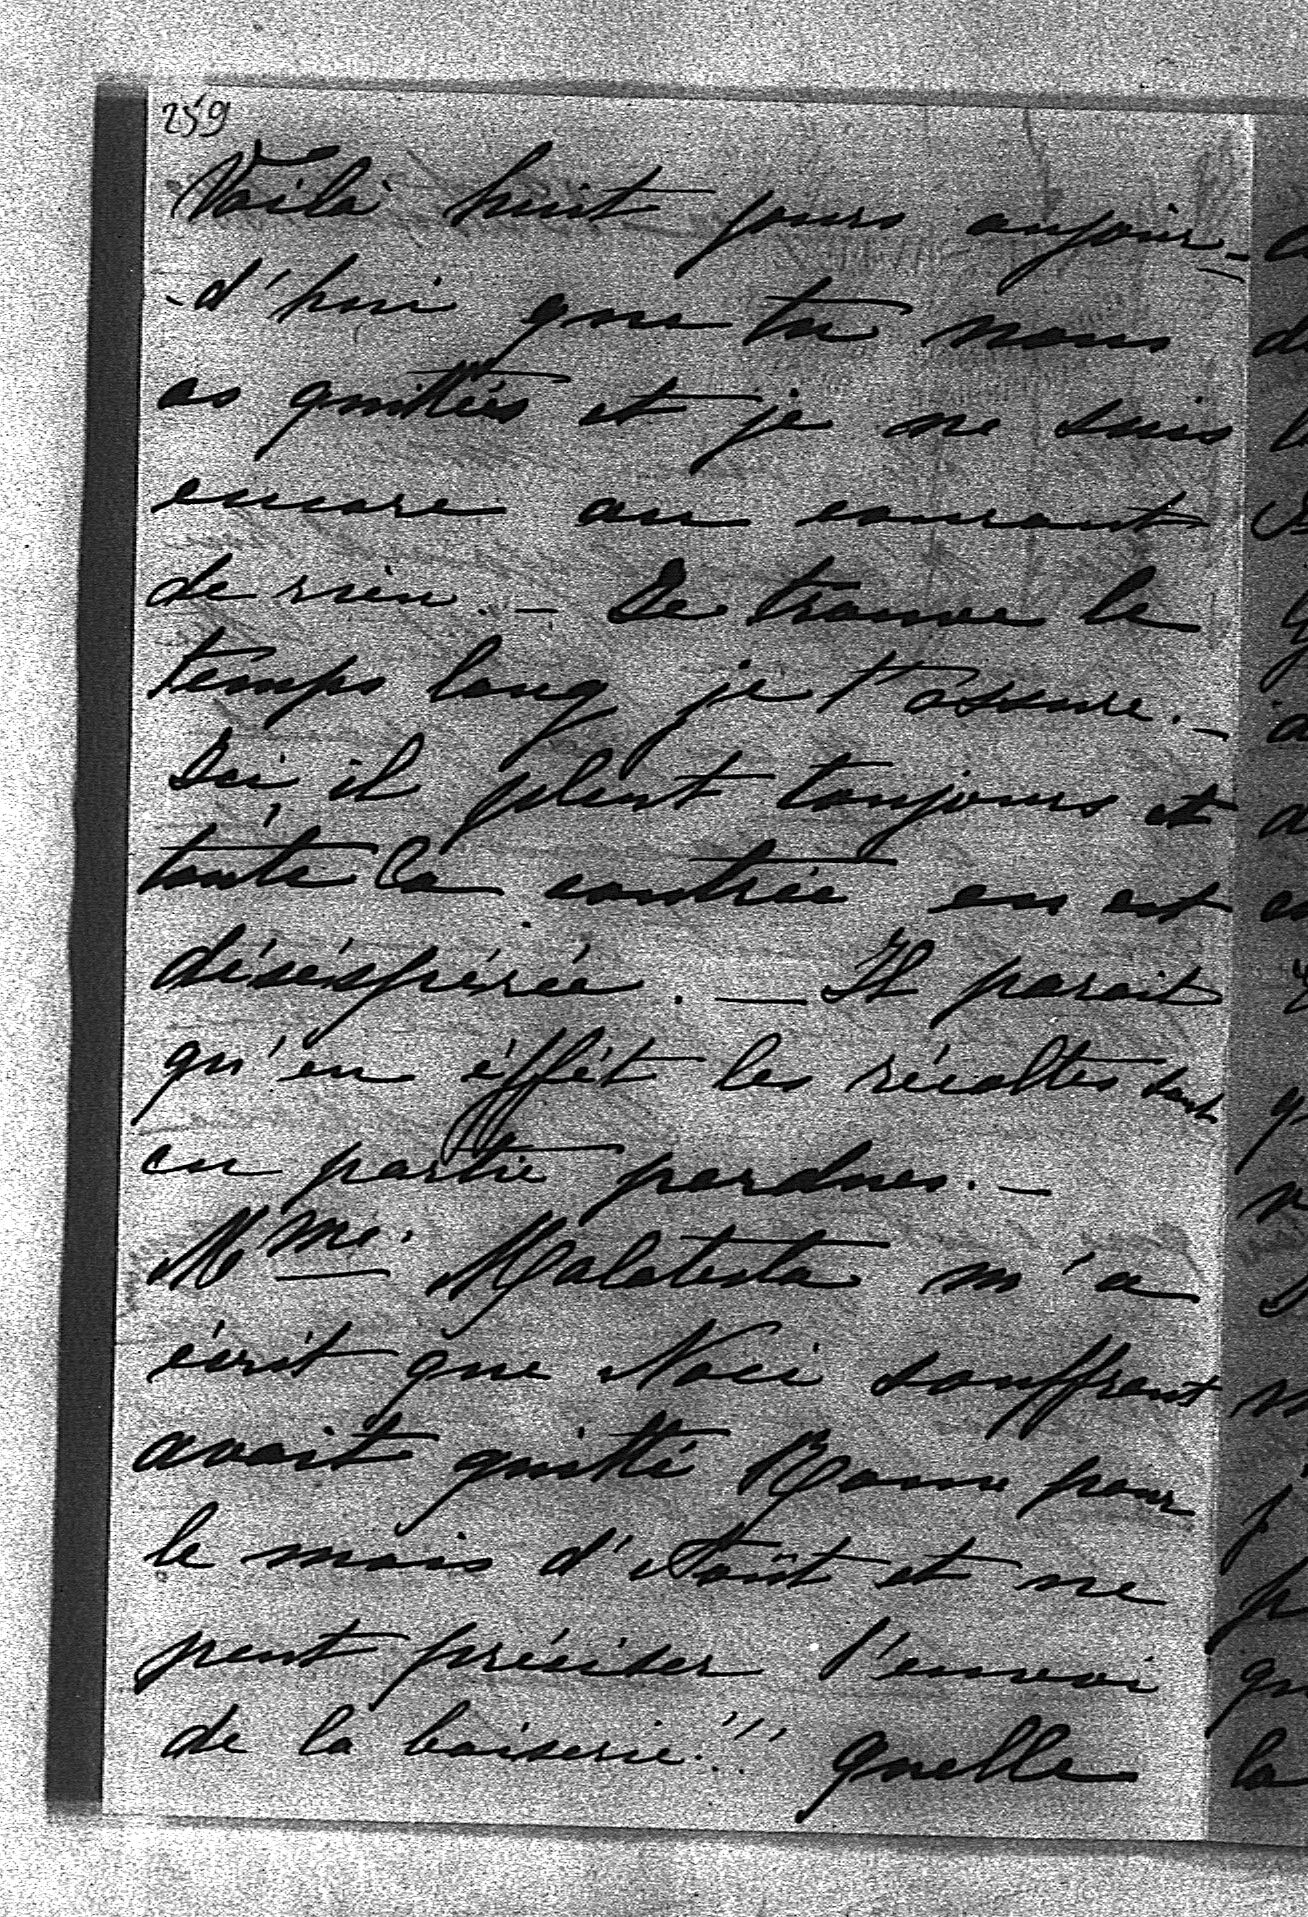 259
Voilà huit jours aujour-
-d'hui que tu nous
as quittés et je ne suis
encore au courant
de rien. — Je trouve le
temps long je t'assure. —
Ici, il pleut toujours et
toute la contrée en est
désespérée. — Il parait
qu'en éffét les récoltes sont
en partie perdues. —
Mme. Malatesta m'a
écrit que Noci souffrant
avait quitté Rome pour
le mois d'Août et ne
peut préciser l'envoi
de la boiserie!!! quelle